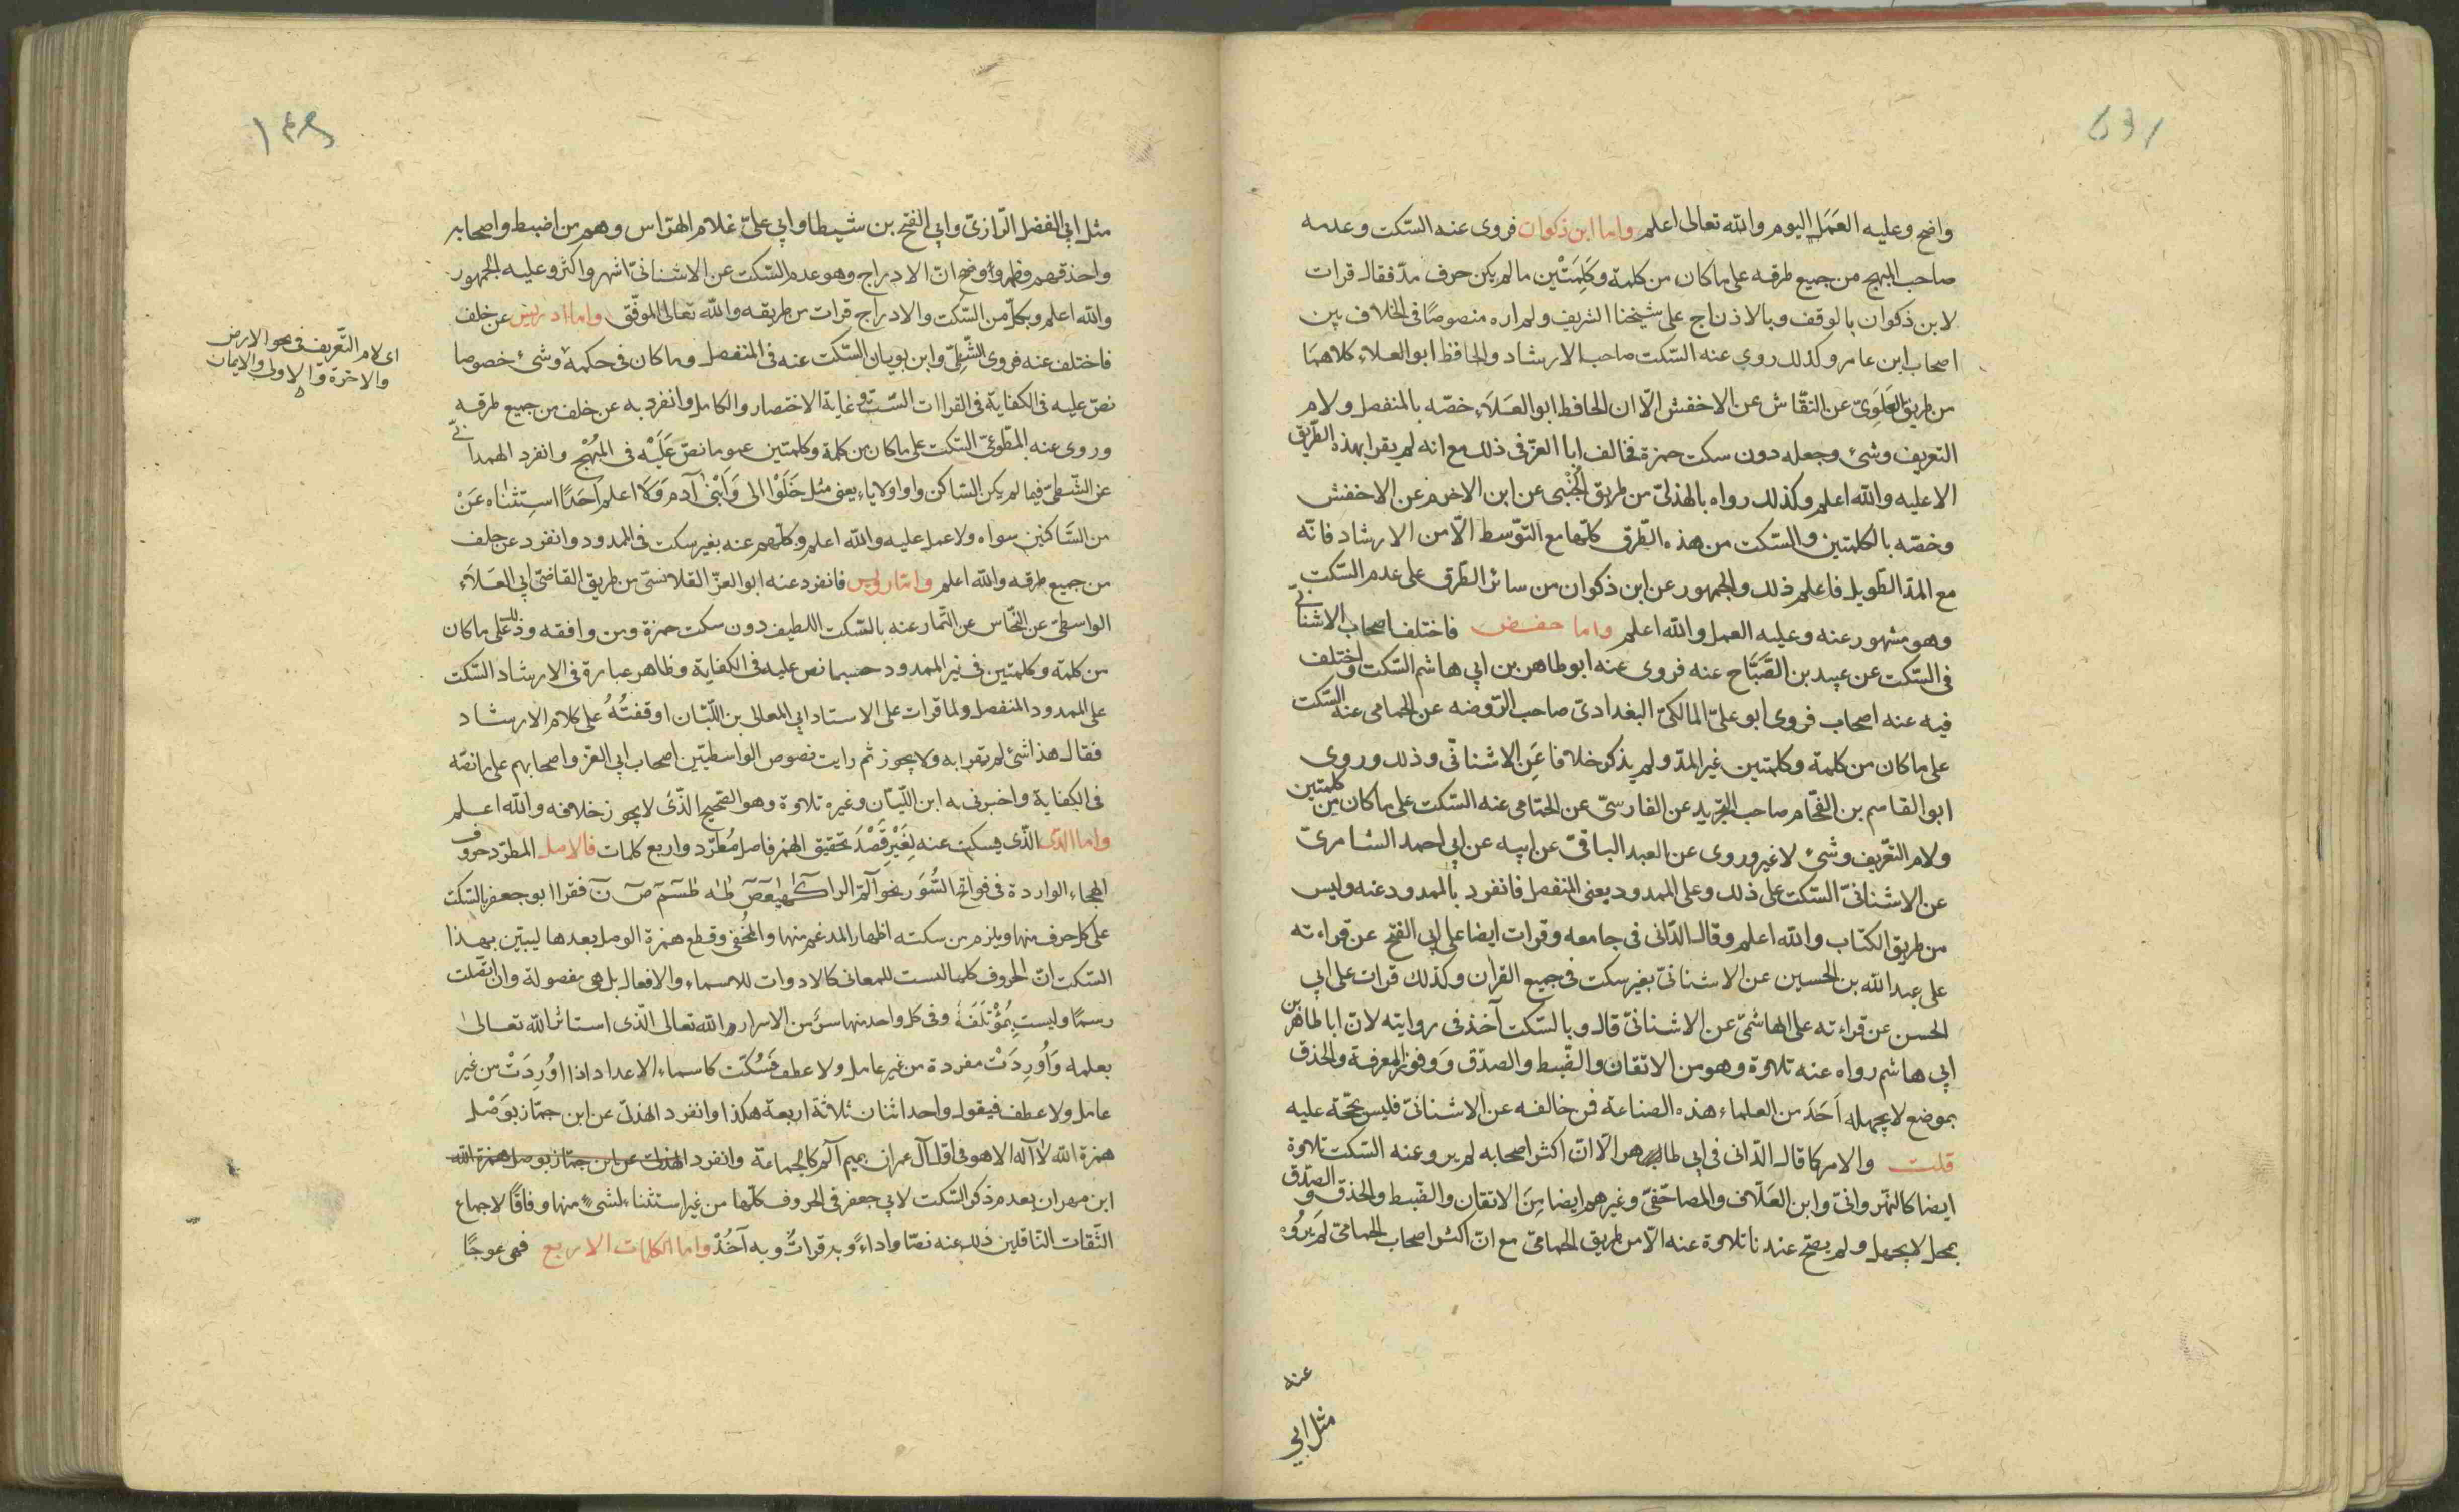 واضح وعليه العَمَل اليوم والله تعالى اعلم واما ابن ذكوان فروى عنه السّكت وعدمه
صاحب المبهج من جميع طرقه على ما كان من كلمة وكَلِمَتْين ما لم يكن حرف مدّ فقال قرات
لابن ذكوان بالوقف وبالادراج على شيخنا الشريف ولم اره منصوصًا فى الخلاف بين
اصحاب ابن عامر وكذلك روى عنه السّكت صاحب الارشاد والحافظ ابو العلاء كلاهمَا
من طريق العَلَوِىّ عن النقّاش عن الاخفش الّا ان الحافظ ابو العَلَاء خصّه بالمنفصل ولام
التعريف وشئ وجعله دون سكت حمزة فخالف ابا العزّ فى ذلك مع انه لم يقرا بهذه الطّريق
الا عليه والله اعلم وكذلك رواه بالهذلىّ من طريق الجُنْبى عن ابن الاخرم عن الاخفش
وخصّه بالكلمتين والسّكت من هذه الطّرق كلّها مع التّوسّط الّا من الارشاد فانّه
مع المدّ الطّويل فاعلم ذلك والجمهور عن ابن ذكوان من سائر الطّرق على عدم السّكت
وهو مشهور عنه وعليه العمل والله اعلم واما حفص فاختلف اصحاب الاشنانّى
فى السّكت عن عبيد بن الصَّبَّاح عنه فروى عنه ابو طاهر بن ابي هاشم السّكت واختلف
فيه عنه اصحاب فروى ابو علىّ المالكىّ البغدادىّ صاحب الرّوضه عن الحمامى عنه السّكت
على ما كان من كلمة وكلمتين غير المدّ ولم يذكر خلافا عَنِ الاشنانّى وذلك وروى
ابو القاسم بن الفحّام صاحب التجريد عن الفارسىّ عن الحمّامى عنه السّكت على ما كان من كلمتين
ولام التّعريف وشئ لا غير وروى عن العبد الباقىّ عن ابيه عن ابى احمد السّامرىّ
عن الاشنانىّ السّكت على ذلك وعلى الممدود يعنى المنفصل فانفرد بالممدود عنه وليس
من طريق الكتاب والله اعلم وقال الدّانى فى جامعه وقرات ايضا على ابى الفتح عن قراءته
على عبد الله بن الحسين عن الاشنانىّ بغير سكت فى جميع القرآن وكذلك قرات على ابي
الحسن عن قراءته على الهاشمىّ عن الاشنانىّ قال وبالسّكت آخذ فى روايته لانّ ابا طاهر بن
ابي هاشم رواه عنه تلاوة وهو من الاتقان والضّبط والصدّق وَوفور المعرفة والحذق
بموضع لا يجهله اَحَدَ من العلماء هذه الصناعة فمن خالفه عن الاشنانىّ فليس بحّجة عليه
قلت والامر كما قال الدّانى فى ابى طاهر الّا انّ اكثر اصحابه لم يرو عنه السّكت تلاوة
ايضا كالنّهروانىّ وابن العَلّاف والمصاحفىّ وغيرهم ايضا مِنَ الاتقان والضّبط والحذق والصّدق
بمحل لا يجهل ولم يصحّ عندنا تلاوة عنه الّا من طريق الحمامىّ مع انّ اكثر اصحاب الحمامىّ لم يَرْوُه
عنه
مثل ابي
مثل ابى الفضل الرّازىّ وابي الفتح بن شيطا وابي علىّ غلام الهرّاس وهم من اضبط واصحابه
واحذقهم فظهر واَوضح انّ الادراج وهو عدم السّكت عن الاشنانىّ اشهر واكثر وعليه الجمهور
والله اعلم وبكلّ من السّكت والادراج قرات من طريقه والله تعالى الموفّق واما ادريس عن خلف
فاختلف عنه فروى الشّطّىّ وابن بويان السّكت عنه فى المنفصل وما كان فى حكمه وشئ خصوصا
نصّ عليه فى الكفاية فى القراات السّت وغاية الاختصار والكامل وانفرد به عن خلف من جميع طرقه
وروى عنه المطّوّعىّ السّكت على ما كان من كلمة وكلمتين عموما نصّ عَلَيْه فى المُبْهج وانفرد الهمدانّى
عن الشّطّىّ فيما لم يكن السّاكن واوا ولا ياء يعنى مثل خَلَوْا الى وَابْنَىْ آدم وَلَا اعلم اَحَدًا استِثناه عَنْ
من السَّاكنين سواه ولا عمل عليه والله اعلم وكلّهم عنه بغير سكت فى الممدود وانفرد عن خلف
من جميع طرقه والله اعلم وامّا رويس فانفرد عنه ابو العزّ القلانسىّ من طريق القاضىّ ابي العَلَاء
الواسطىّ عن النّخّاس عن التّمّار عنه بالسّكت اللطيف دون سكت حمزة ومن وافقه وذلك على ما كان
من كلمة وكلمتين فى غير الممدود حسبما نص عليه فى الكفاية وظاهر عبارة فى الارشاد السّكت
على الممدود المنفصل ولما قرات على الاستاد ابي المعالى بن اللّبّان اوقفتُهُ على كلام الارشاد
فقال هذا شئ لم يقرا به ولا يجوز ثم رايت نصوص الواسطيّين اصحاب ابي العزّ واصحابهم على ما نصّه
فى الكفاية واخبرنى به ابن اللّبّان وغيره تلاوة وهو الصّحيح الذّى لا يجوز خلافه والله اعلم
واما الذى الذّى يسكت عنه لِغَيْرِ قَصْدَ تحقيق الهمز فاصل مُطّرد واربع كلمات فالاصل المطرّد حروف
الهجاء الواردة فى فواتح السُّوَر نحو آلمّ الرا كهيعص طه طسم ص ن فقرا ابو جعفر بالسّكت
على كل حرف منها ويلزم من سكته اظهار المدغم منها والمخُفى وقطع همزة الوصل بعدها ليبيّن بهذا
السّكت انّ الحروف كلها ليست للمعانى كالادوات للاسماء والافعال بل هى مفصولة وان اتّصلت
رسمًا وليستِ بمُؤْتَلَفَةْ وفى كل واحد منها سرّ من الاسرار والله تعالى الّذى استاثر الله تعالى
بعلمه وَاُورِدَتْ مفردة من غير عامل ولا عطف فَسُكّنت كاسماء الاعداد اذا اوُرِدَتْ من غير
عامل ولا عطف فيقول واحد اثنان ثلاثة اربعة هكذا وانفرد الهذلىّ عن ابن جمّاز بوَصْل
همزة الله لا آله الا هو فى اوّل آل عمران بميم آلم كالجماعة وانفرد الهذلى عن ابن جمّاز بوصل همزة الله
ابن مهران بعدم ذكر السّكت لابي جعفر فى الحروف كلّها من غير استثناء لشئ منها وفاقًا لاجماع
الثّقات النّاقلين ذلك عنه نصّا واداءً وبه قراتُ وبه آخُذُ واما الكلمات الاربع فهى عوجًا
اى لام التّعريف فى نحو الارض
والاخرة والاولى والايمان